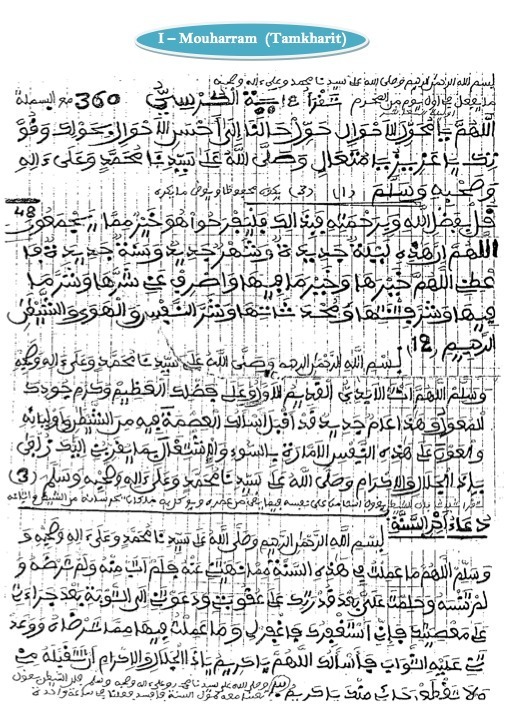 I – Mouharram (Tamkharit)
بسم الله الرحمن الرحيم وصلى الله على سيدنا محمد وعلى اله وصحبه
ما يفعل في اول يوم من المحرم تقرأ ءاية الكرسي 360 مع البسملة
اللهم يا محول الاحوال حول حالنا إلى أحسن الاحوال بحولك وقو
تك يا عزيز يا متعال وصلى الله على سيدنا محمد وعلى ءاله
وصحبه وسلم
قل بفضل الله وبرحمته فبذالك فليفرحوا هو خير مما يجمعون 48
اللهم إن هذه ليلة جديدة وشهر جديد وسنة جديدة فا
عطني اللهم خيرها وخير ما فيها واصرف عني شرها وشر ما
فيها وشر فتنتها ومحدثاتها وشر النفس والهوى والشيطن
الرجيم (12)
بسم الله الرحمن الرحيم وصلى الله على سيدنا محمد وعلى ءاله وصحبه
وسلم اللهم أنت الابدي القديم الاول وعلى فضلك العظيم وكرم جودك
المعول وهذا عام جديد قد أقبل أسألك العصمة فيه من الشيطن وأوليائه
والعون على هذه النفس الامارة بالسوء والاشتغال بما يقربني إليك زلفى
ياذا الجلال والاكرام وصلى الله على سيدنا محمد وعلى ءاله وصحبه وسلم (3)
دعاء ءاخر السنة
بسم الله الرحمن الرحيم وصلى الله على سيدنا محمد وعلى ءاله وصحبه
وسلم اللهم ما عملت في هذه السنة مما نهيتني عنه فلم أتب منه ولم ترضه و
لم تنسه وحلمت علي بعد قدرتك على عقوبتي ودعوتني إلى التوبة بعد جراءتي
على معصيتك فإني أستغفرك فاغفر لي وما عملت فيها مما ترضاه ووعد
تني عليه الثواب فأسألك اللهم يا كريم ياذا الجلال والاكرام أن تقبله مني
ولا تقطع رجائي منك يا كريم